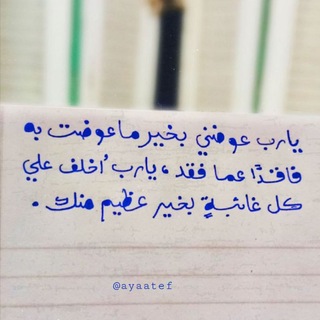 يارب عوضني بخير ما عوضت به
فاقدًا عما فقد، يارب اُخلف علي
كل غائبةٍ بخير عظيم منك.
@ayaatef